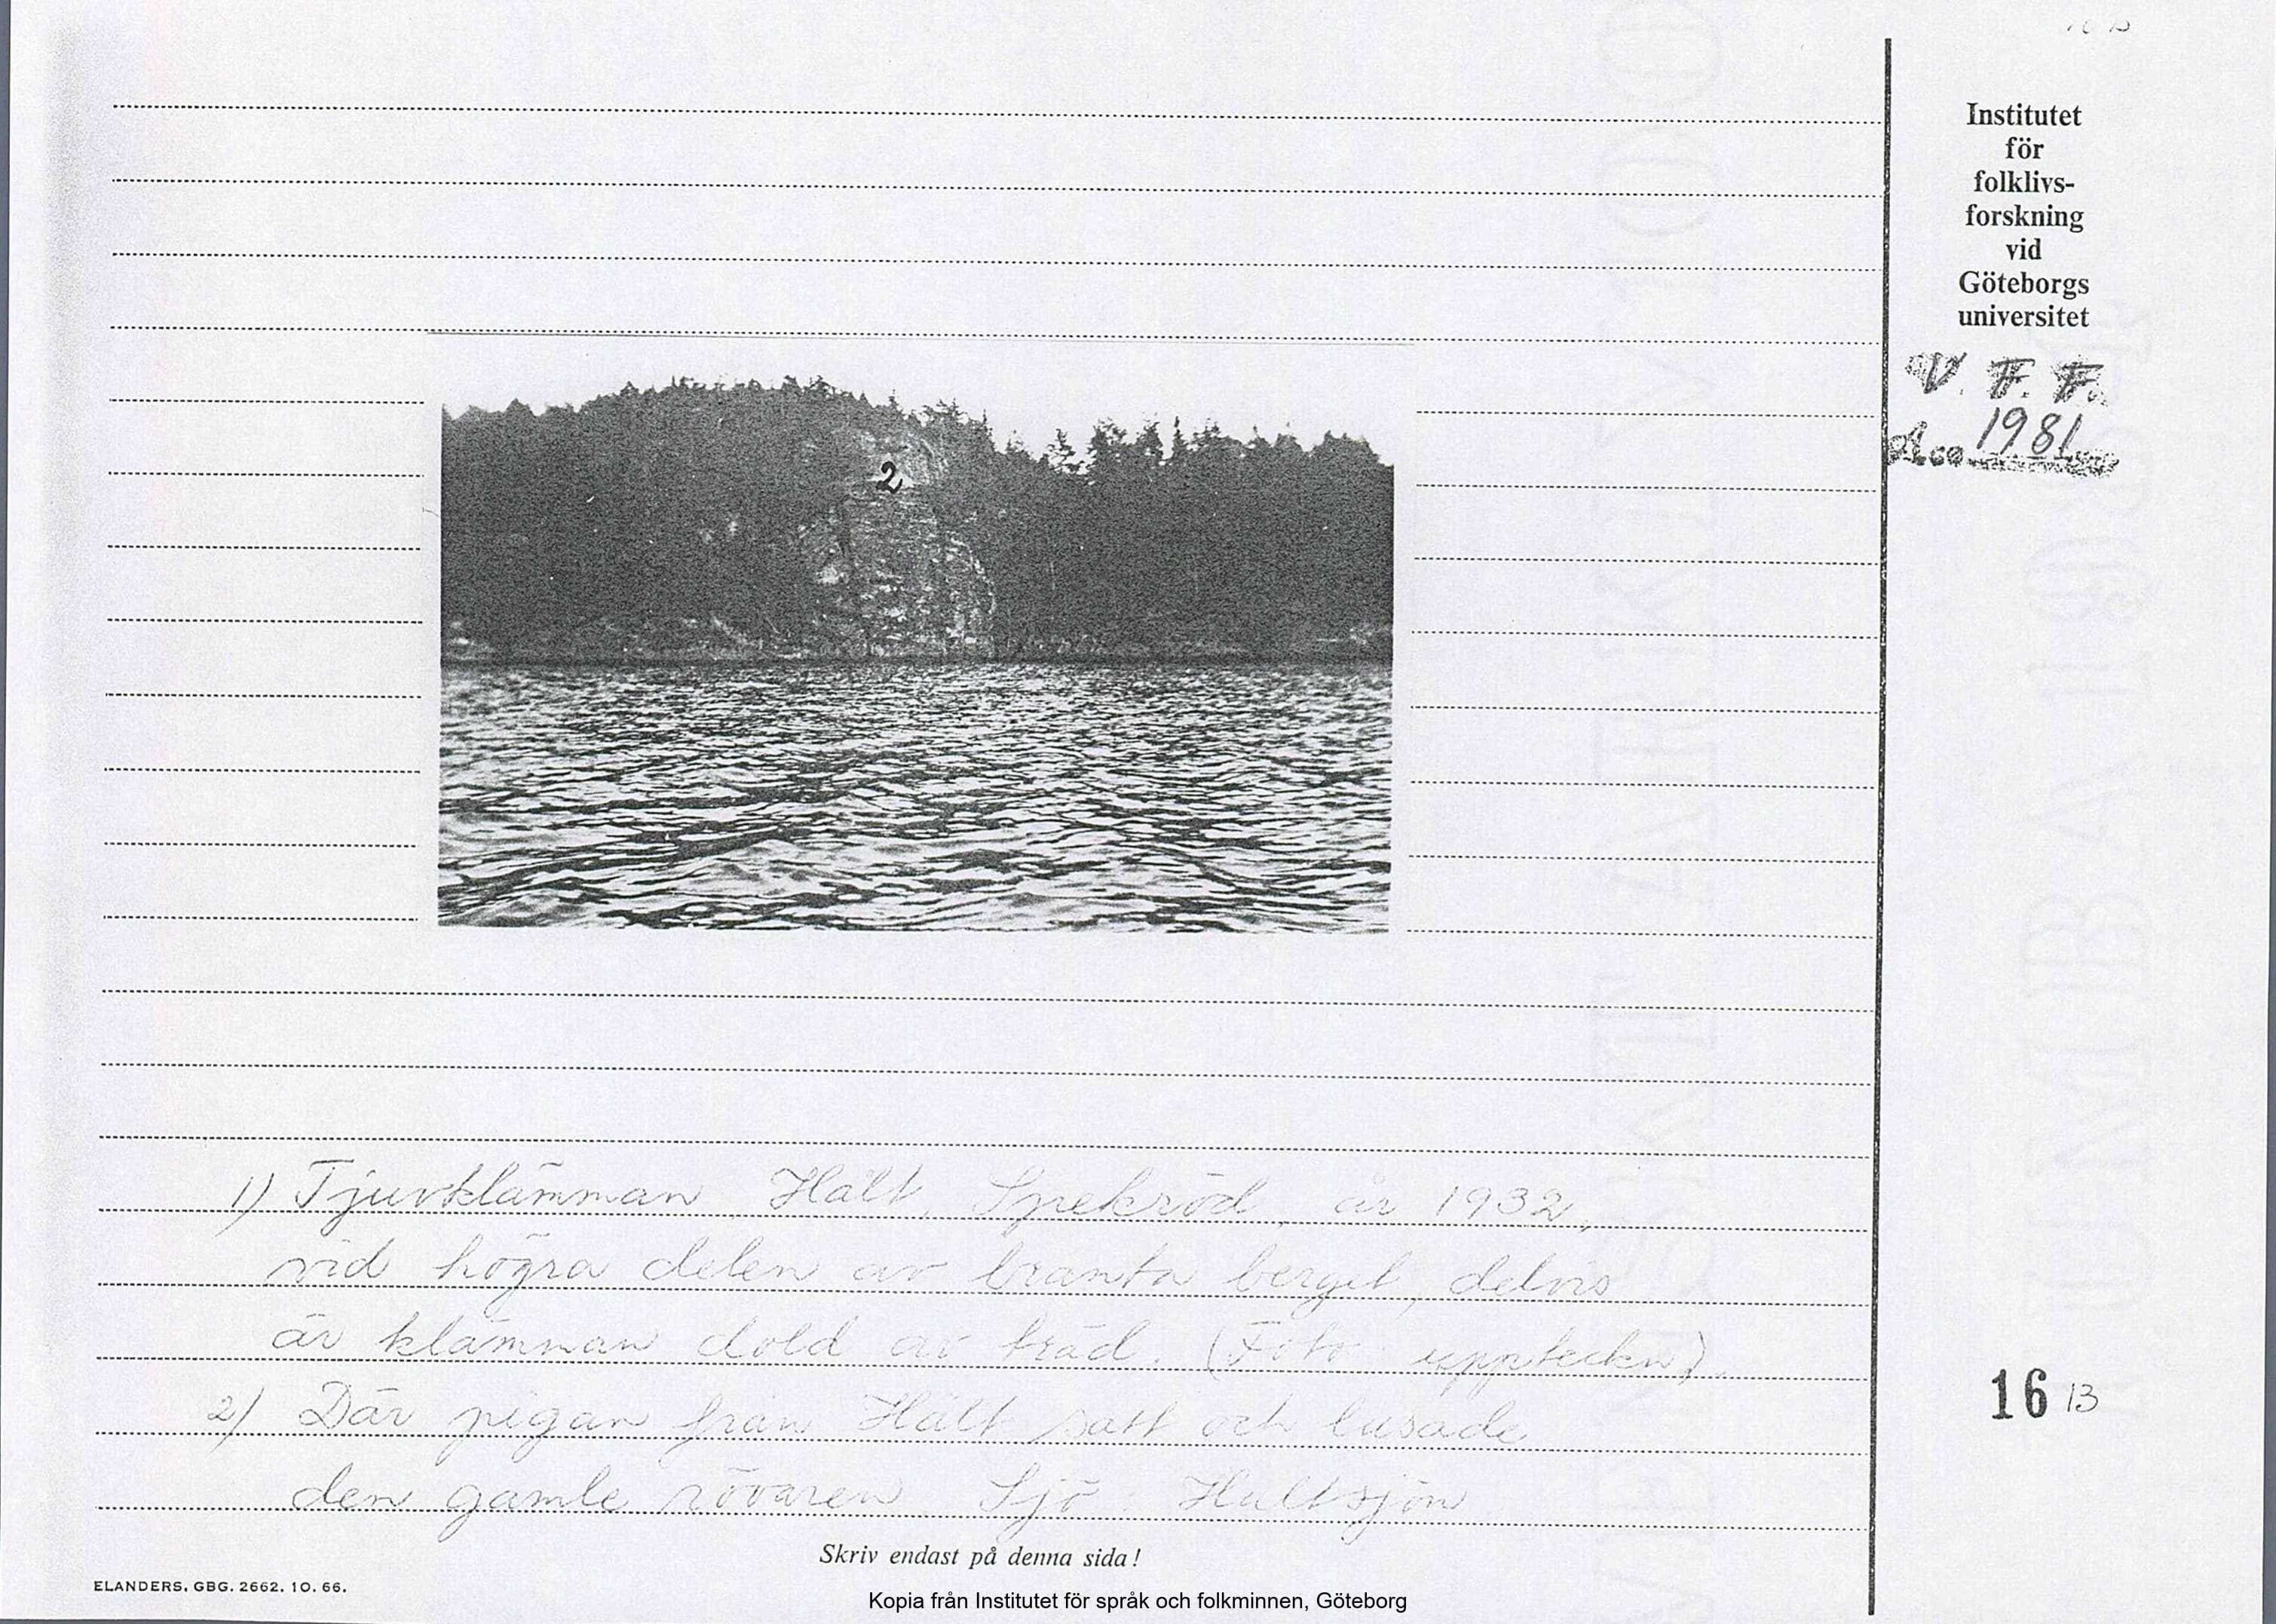 Institutet
för
folklivs-
forskning
vid
Göteborgs
universitet
V. F. F.
1981
2
1) Tjuvklämman, Hält, Spekeröd, år 1932,
vid högra delen av branta berget, delvis
är klämman dold av träd. (Foto uppteckn).
2) Där pigan från Hält satt och lusade
den gamle rövaren Sjö Hältsjön
16 13
Skriv endast på denna sida!
ELANDERS, GBG. 2662. 10. 66.
Kopia från Institutet för språk och folkminnen, Göteborg